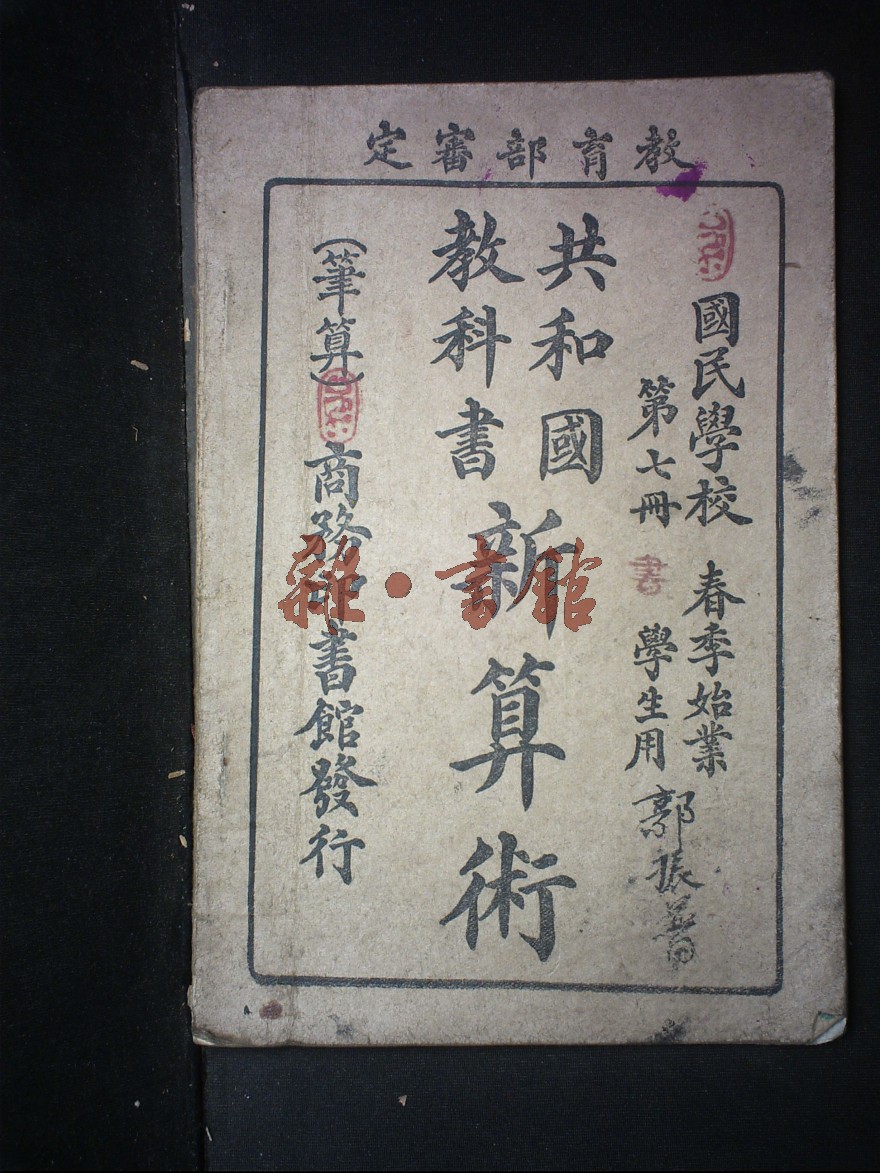 教育部審定
國民學校 春季始業
第七冊 學生用
書
郭振
共和國
教科書
新算術
(筆算)
商務印書館發行
雜·書館